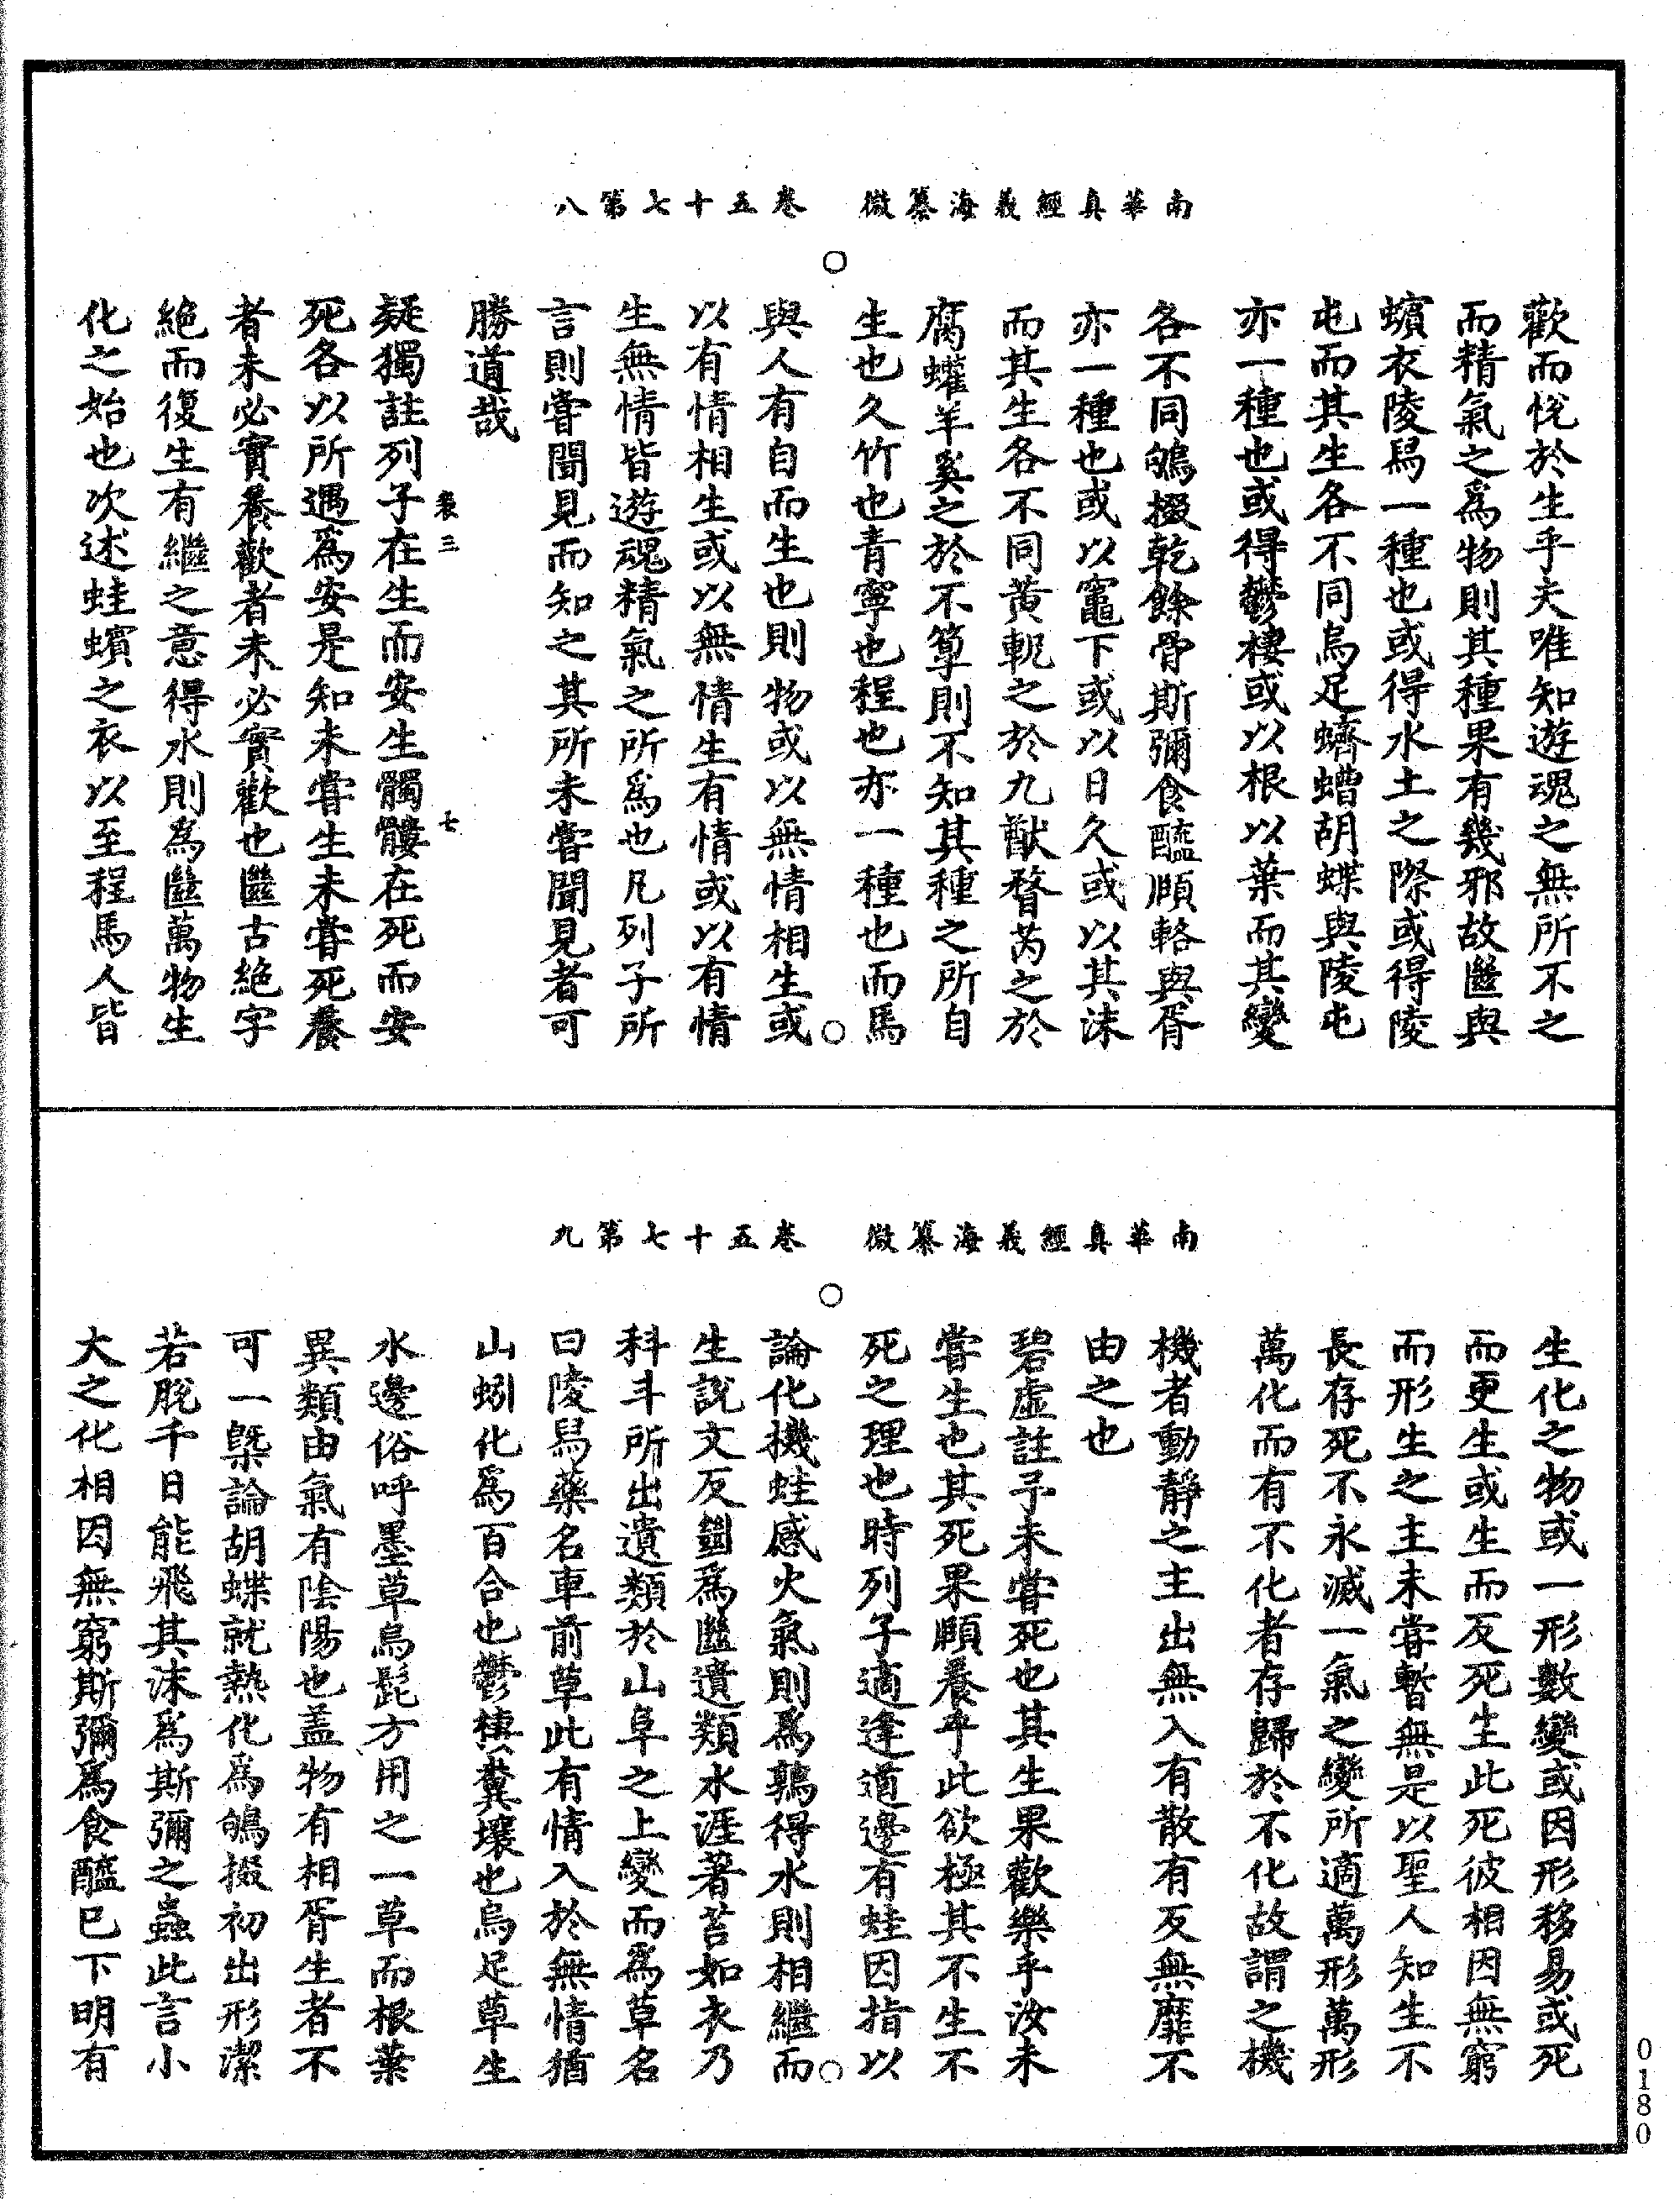 南華真經義海纂微　卷五十七第八
歡而悅於生乎夫唯知遊魂之無所不之
而精氣之爲物則其種果有幾邪故㡭與
蠙衣陵舄一種也或得水土之際或得陵
屯而其生各不同烏足蠐螬胡蝶與陵屯
亦一種也或得鬱棲或以根以葉而其變
各不同鴝掇乾餘骨斯彌食醯頤輅與胥
亦一種也或以竈下或以日久或以其沫
而其生各不同黃軦之於九猷瞀芮之於
腐蠸羊奚之於不箰則不知其種之所自
生也久竹也青寧也程也亦一種也而馬
與人有自而生也則物或以無情相生或
以有情相生或以無情生有情或以有情
生無情皆遊魂精氣之所爲也凡列子所
言則嘗聞見而知之其所未嘗聞見者可
勝道哉
疑獨註列子在生而安生髑髏在死而安
死各以所遇爲安是知未嘗生未嘗死養
者未必實養歡者未必實歡也㡭古絕字
絕而復生有繼之意得水則爲㡭萬物生
化之始也次述蛙蠙之衣以至程馬人皆
七
南華真經義海纂微　卷五十七第九
生化之物或一形數變或因形移易或死
而更生或生而反死生此死彼相因無窮
而形生之主未嘗暫無是以聖人知生不
長存死不永滅一氣之變所適萬形萬形
萬化而有不化者存歸於不化故謂之機
機者動靜之主出無入有散有反無靡不
由之也
碧虛註予未嘗死也其生果歡樂乎汝未
嘗生也其死果頤養乎此欲極其不生不
死之理也時列子適逢道邊有蛙因指以
論化機蛙感火氣則爲鶉得水則相繼而
生說文反㡭爲㡭遺類水涯著苔如衣乃
科斗所出遺類於山阜之上變而爲草名
曰陵舄藥名車前草此有情入於無情猶
山蚓化爲百合也鬱棲糞壤也烏足草生
水邊俗呼墨草烏髭方用之一草而根葉
異類由氣有陰陽也蓋物有相胥生者不
可一槩論胡蝶就熱化爲鴝掇初出形潔
若脫千日能飛其沫爲斯彌之蟲此言小
大之化相因無窮斯彌爲食醯已下明有
0180